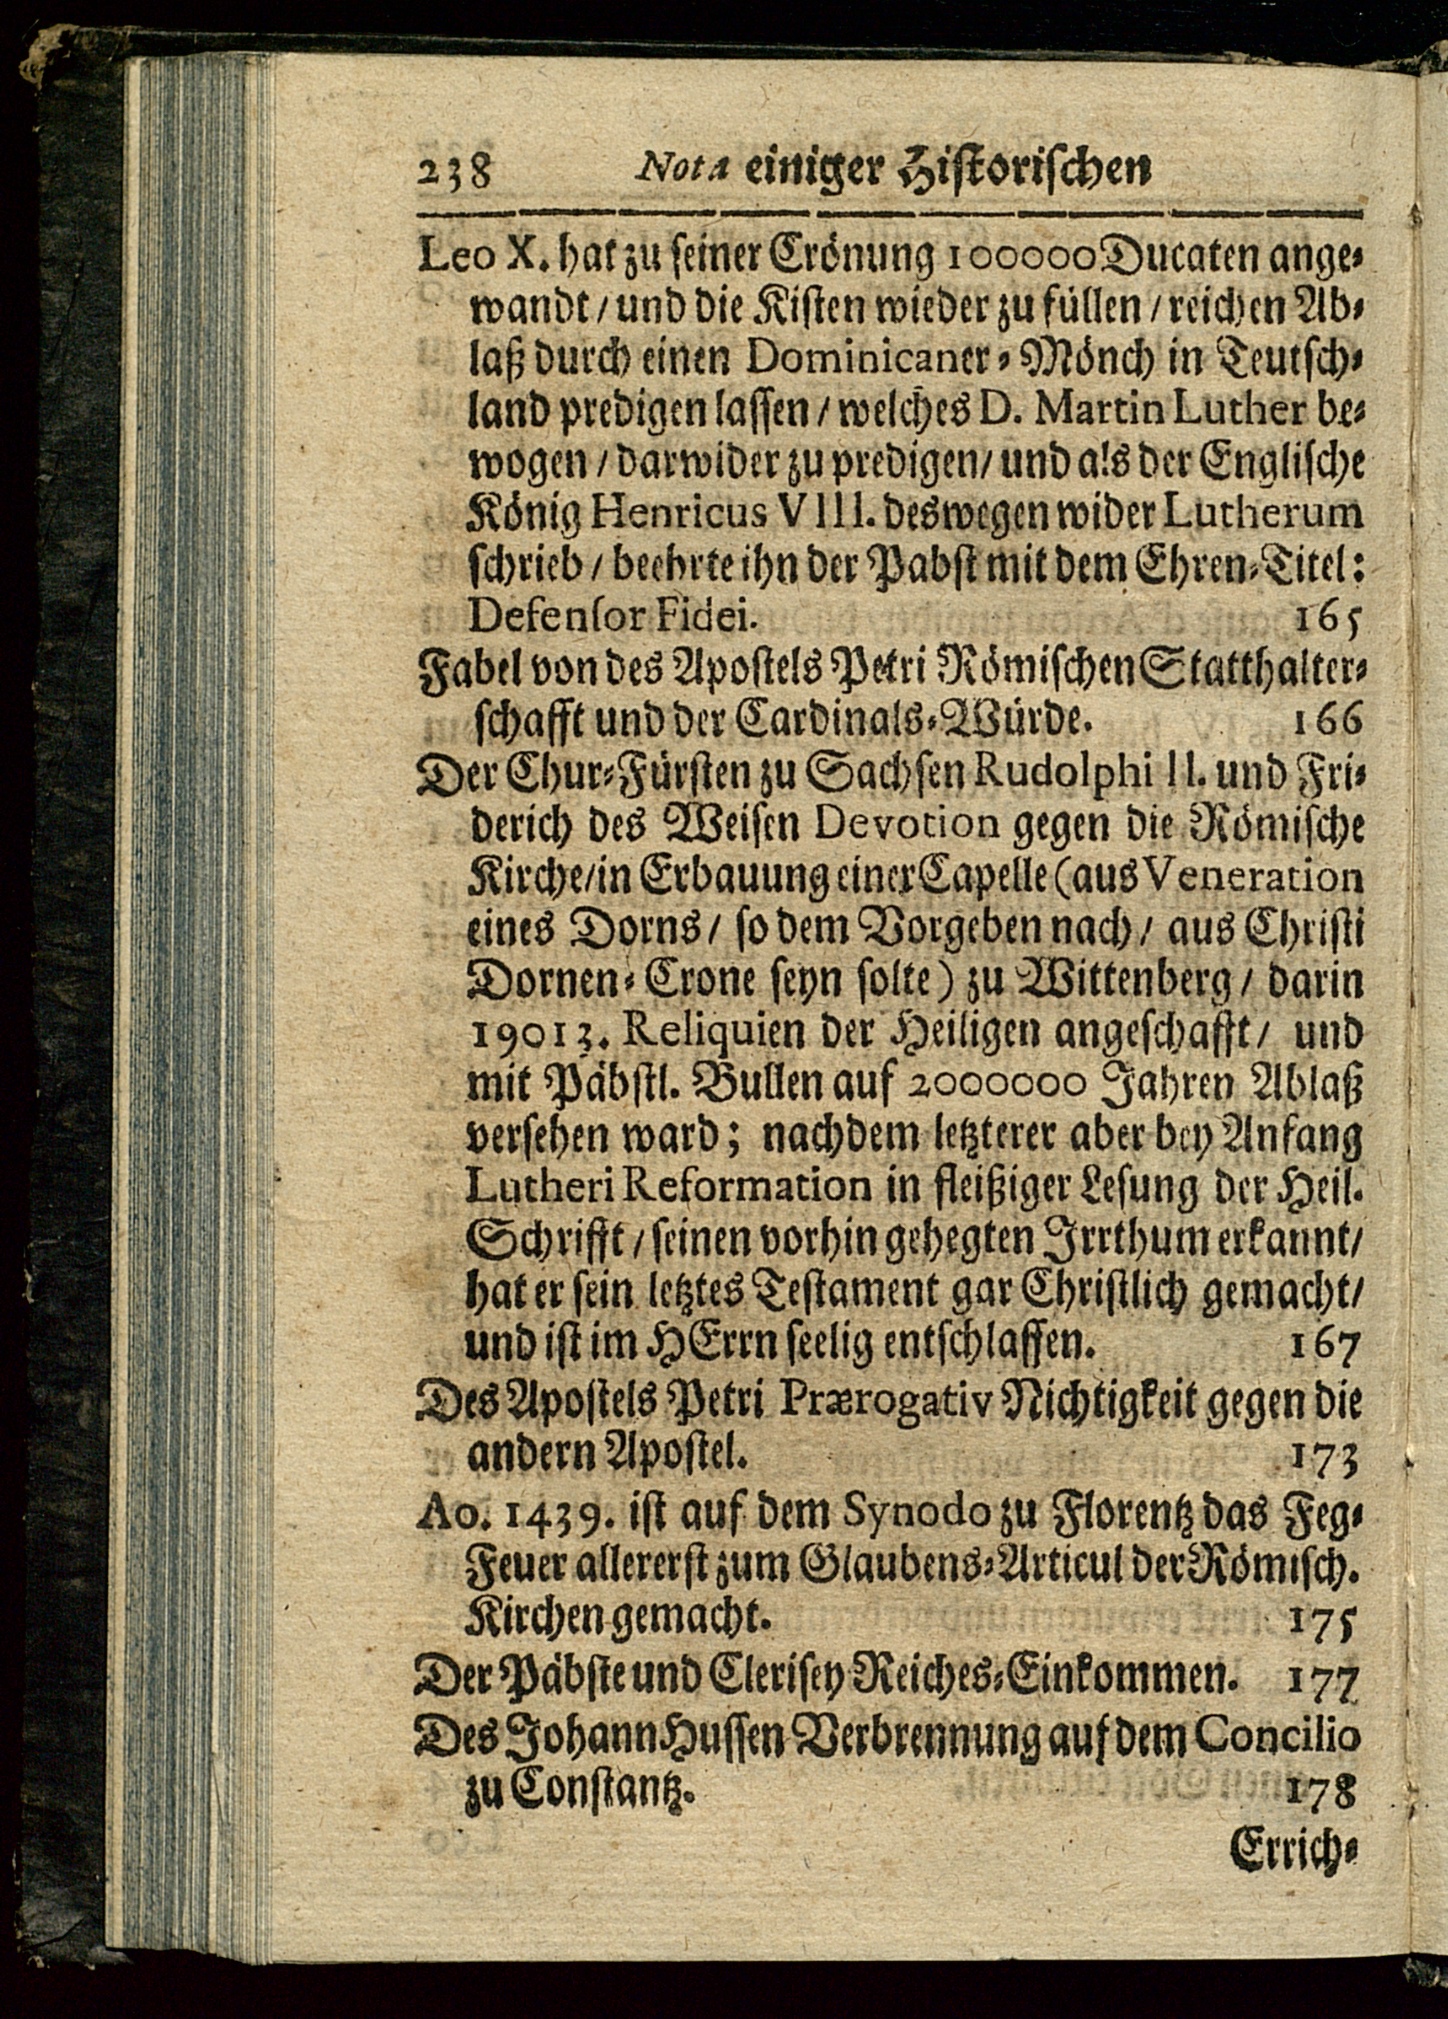 238 Nota einiger Hiſtoriſchen
Leo X. hat zu ſeiner Crönung 100000 Ducaten ange-
wandt / und die Kiſten wieder zu füllen / reichen Ab-
laß durch einen Dominicaner-Mönch in Teutſch-
land predigen laſſen / welches D. Martin Luther be-
wogen / darwider zu predigen / und als der Engliſche
König Henricus VIII. deswegen wider Lutherum
ſchrieb / beehrte ihn der Pabſt mit dem Ehren-Titel:
Defenſor Fidei. 165
Fabel von des Apoſtels Petri Römiſchen Statthalter-
ſchafft und der Cardinals-Würde. 166
Der Chur-Fürſten zu Sachſen Rudolphi II. und Fri-
derich des Weiſen Devotion gegen die Römiſche
Kirche / in Erbauung einer Capelle (aus Veneration
eines Dorns / ſo dem Vorgeben nach / aus Chriſti
Dornen-Crone ſeyn ſolte) zu Wittenberg / darin
19013. Reliquien der Heiligen angeſchafft / und
mit Päbſtl. Bullen auf 2000000 Jahren Ablaß
verſehen ward; nachdem letzterer aber bey Anfang
Lutheri Reformation in fleißiger Leſung der Heil.
Schrifft / ſeinen vorhin gehegten Irrthum erkannt /
hat er ſein letztes Teſtament gar Chriſtlich gemacht /
und iſt im HErrn ſeelig entſchlaffen. 167
Des Apoſtels Petri Prærogativ Nichtigkeit gegen die
andern Apoſtel. 173
Ao. 1439. iſt auf dem Synodo zu Florentz das Feg-
Feuer allererſt zum Glaubens-Articul der Römiſch.
Kirchen gemacht. 175
Der Päbſte und Cleriſey Reiches-Einkommen. 177
Des Johann Huſſen Verbrennung auf dem Concilio
zu Conſtantz. 178
Errich-